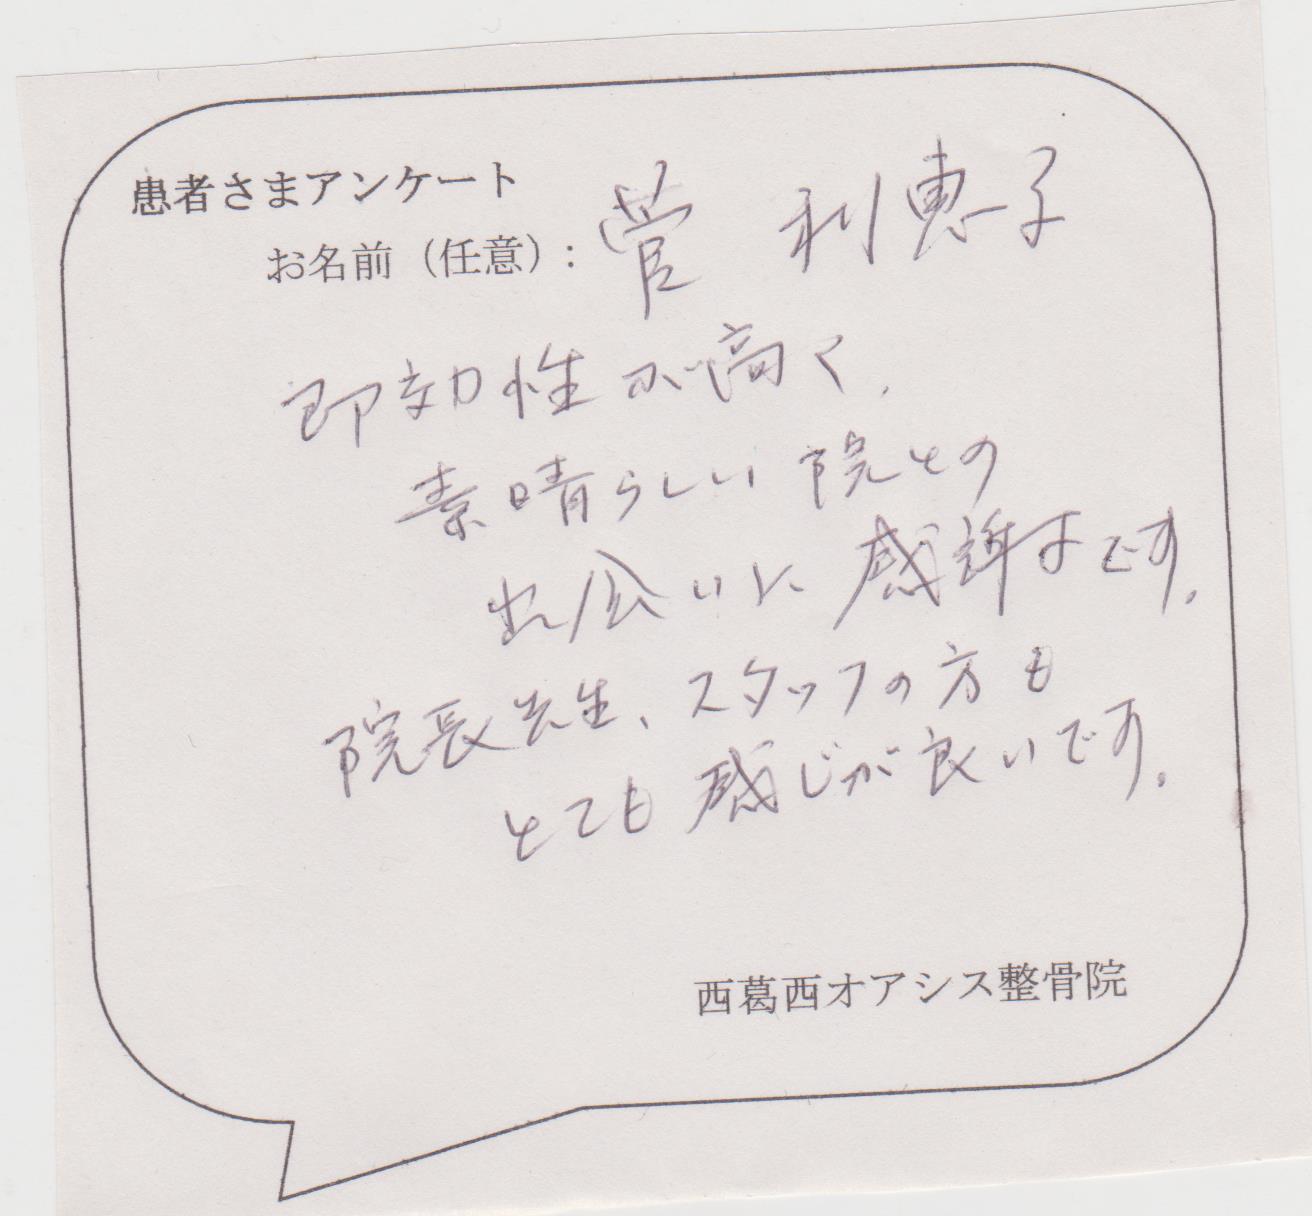 患者さまアンケート
お名前（任意）： 菅 利恵子
即効性が高く、
素晴らしい院との
出会いに感謝です。
院長先生、スタッフの方も
とても感じが良いです。
西葛西オアシス整骨院